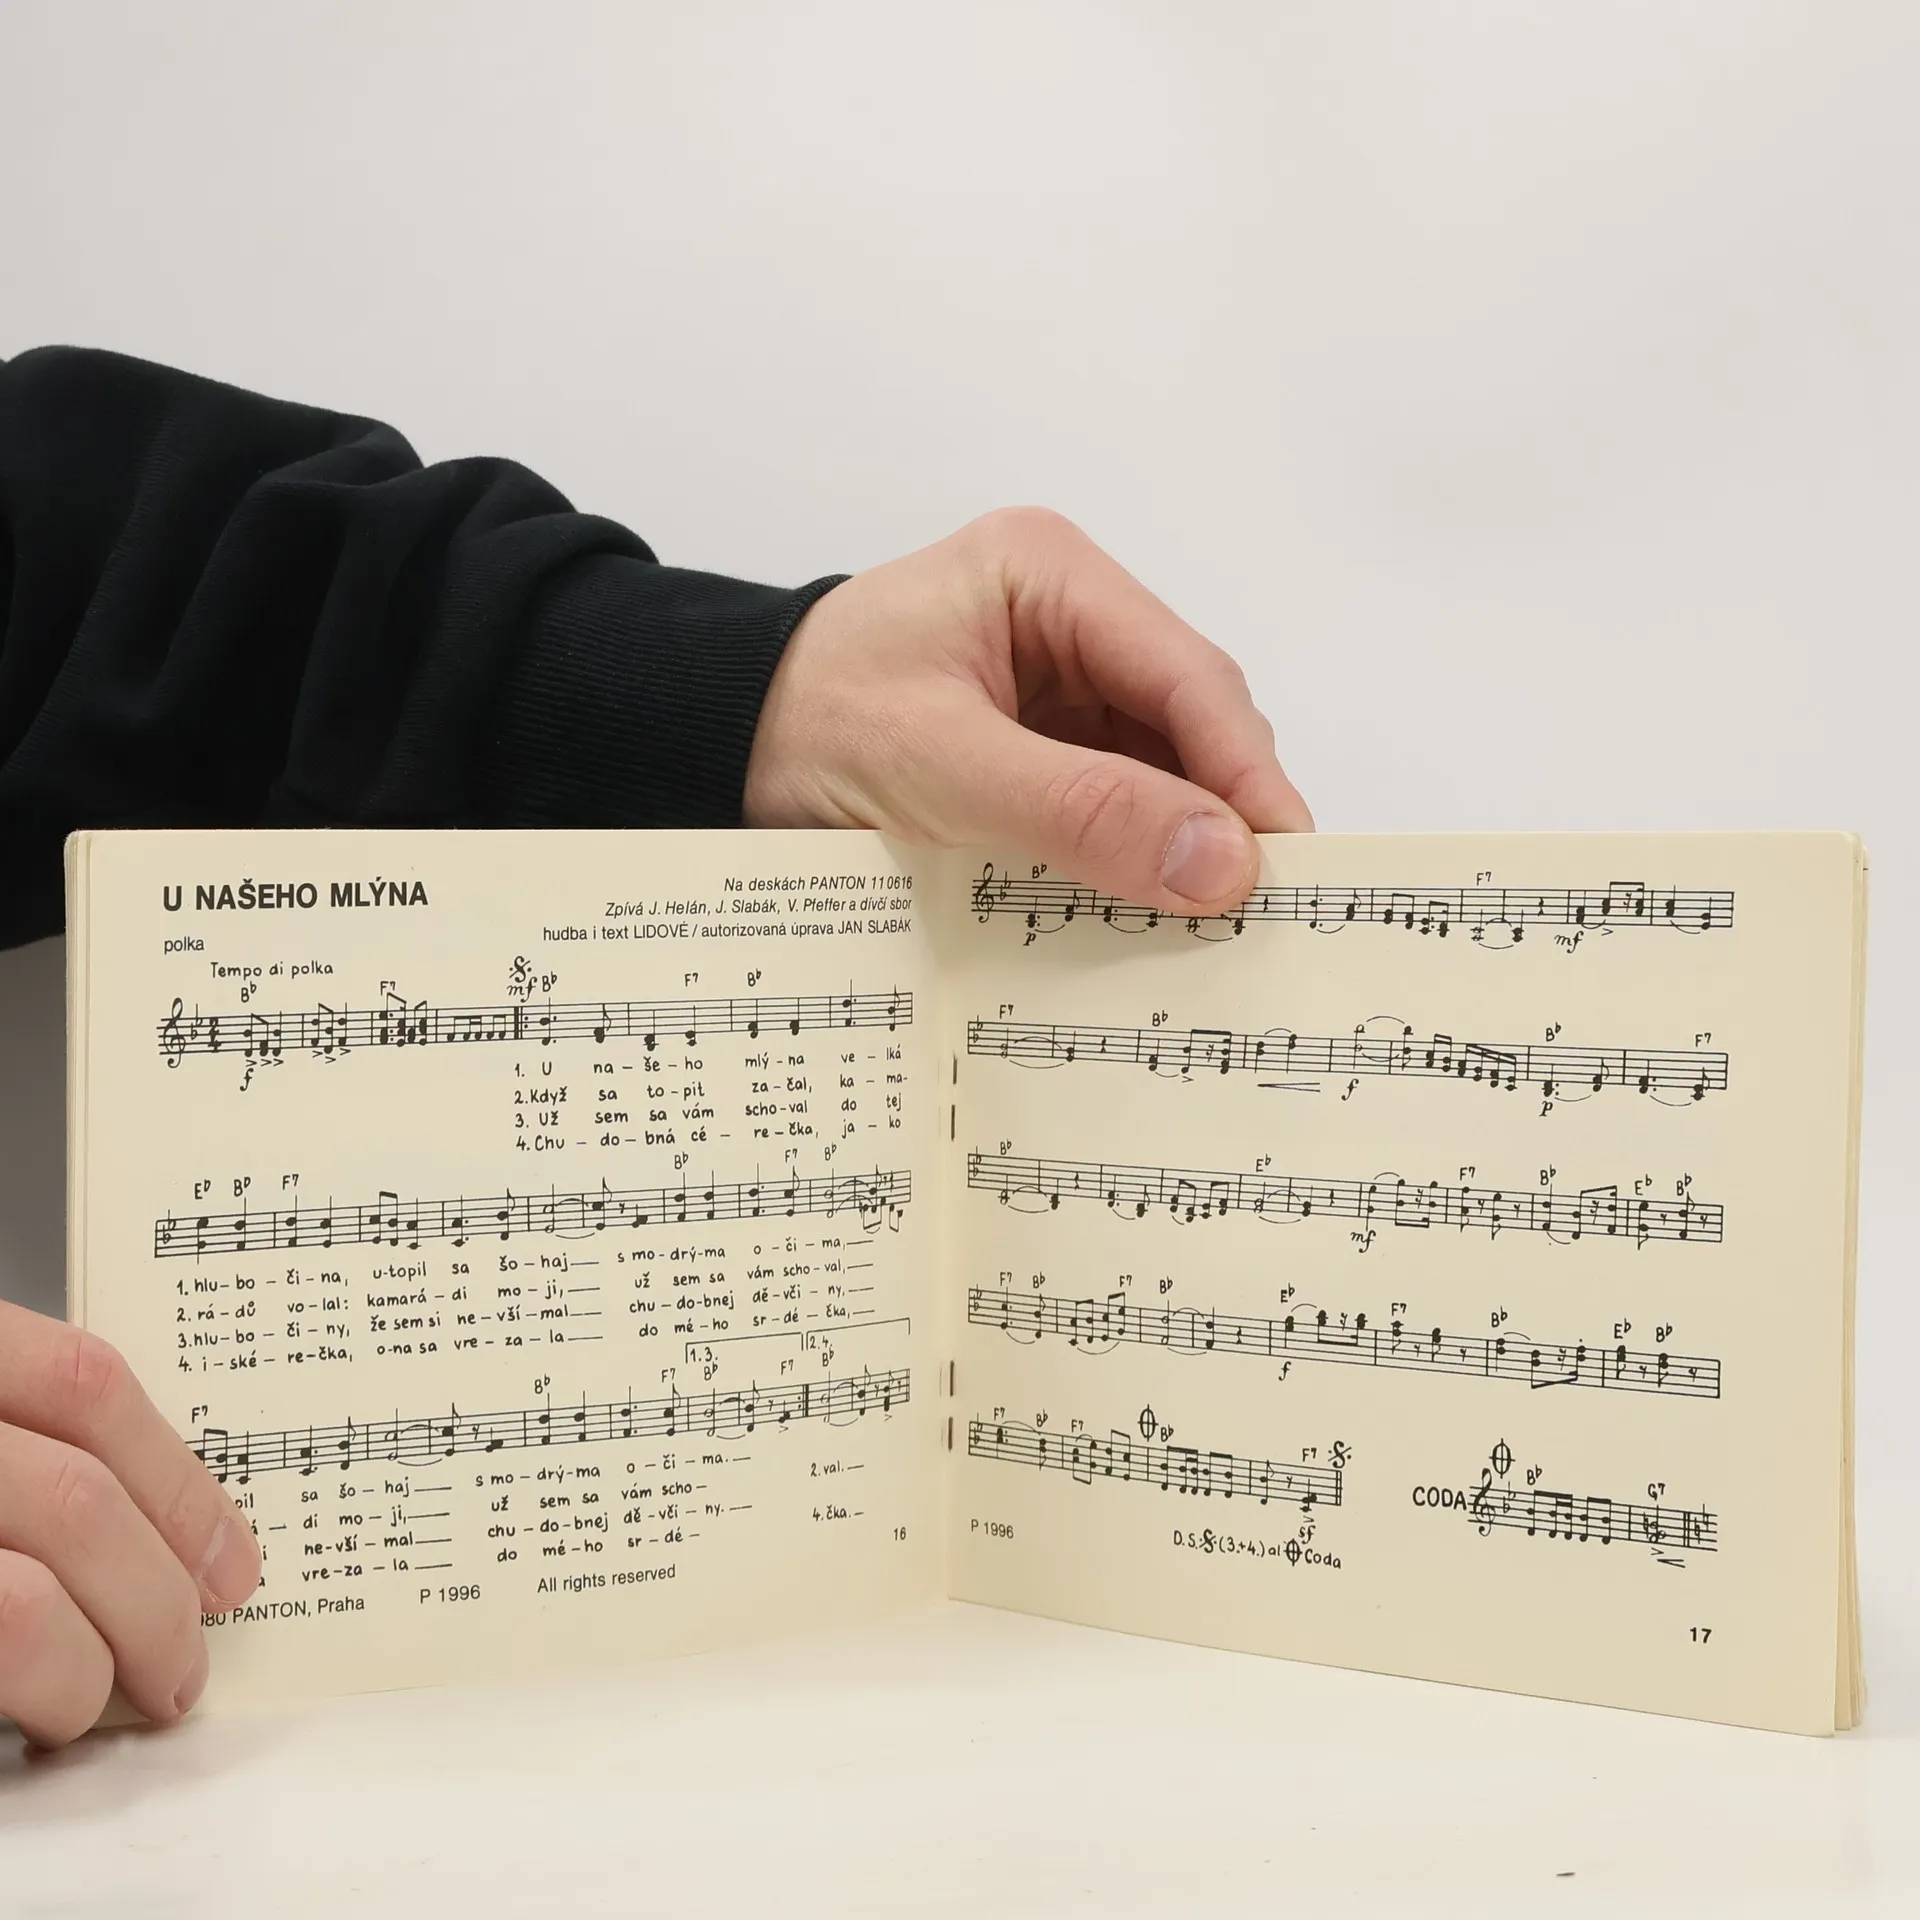 U NAŠEHO MLÝNA
Na deskách PANTON 11 0616
Zpívá J. Helán, J. Slabák, V. Pfeffer a dívčí sbor
hudba i text LIDOVÉ / autorizovaná úprava JAN SLABÁK
polka
Tempo di polka
B♭ F7 mf B♭ F7 B♭
f
1. U na – še – ho mlý – na ve – lká
2. Když sa to – pit za – čal, ka – ma-
3. Už sem sa vám scho – val do tej
4. Chu – do – bná cé – re – čka, ja – ko
E♭ B♭ F7 B♭ F7 B♭
1. hlu – bo – či – na, u-topil sa šo – haj s mo – drý-ma o – či – ma,
2. rá – dů vo – lal: kamará – di mo – ji, už sem sa vám scho – val,
3. hlu – bo – či – ny, že sem si ne – vší – mal chu – do – bnej dě – vči – ny,
4. i – ské – re – čka, o-na sa vre – za – la do mé – ho sr – dé – čka,
F7 B♭ F7 1.3. B♭ F7 2.4. B♭
pil sa šo – haj s mo – drý-ma o – či – ma.
di mo – ji, už sem sa vám scho – 2. val.
ne-vší – mal chu – do – bnej dě – vči – ny.
vre-za – la do mé – ho sr – dé – 4. čka.
16
980 PANTON, Praha P 1996 All rights reserved
B♭ F7
p mf
F7 B♭ B♭ F7
f p
B♭ E♭ F7 B♭ E♭ B♭
mf
F7 B♭ F7 B♭ E♭ F7 B♭ E♭ B♭
f
F7 B♭ F7 B♭ F7
CODA B♭ G7
sf
P 1996 D.S. (3.+4.) al Coda
17